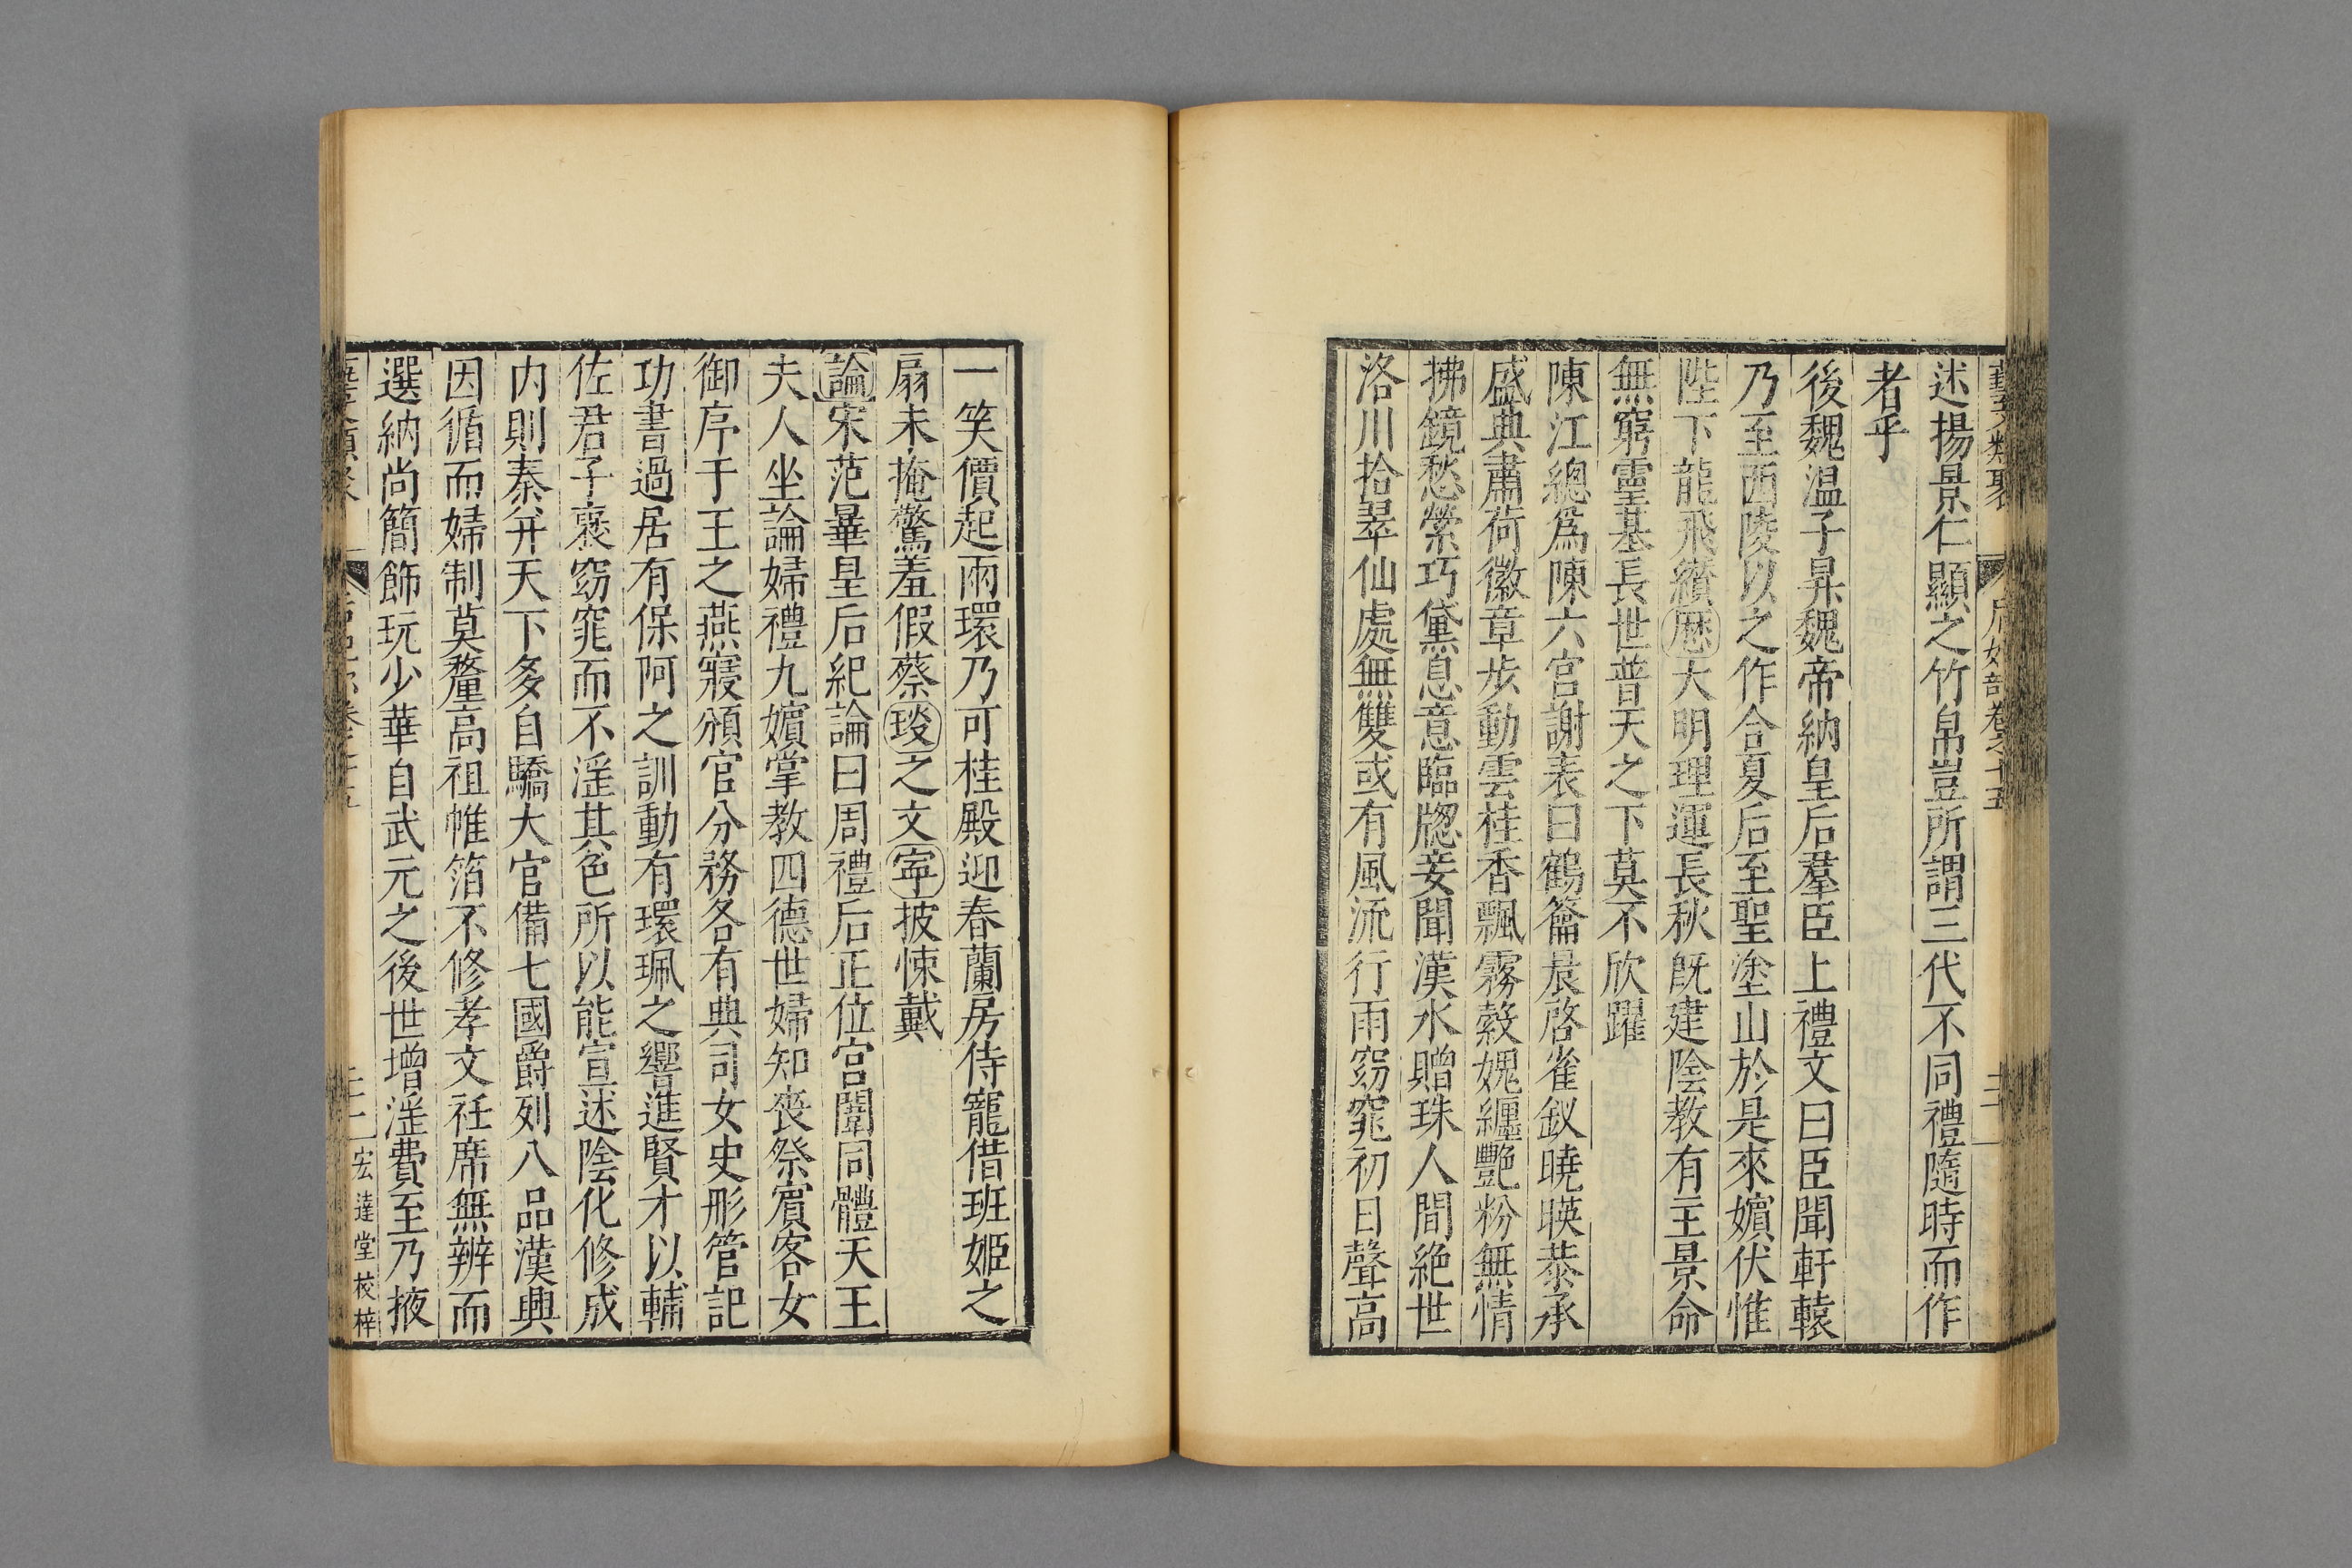 述揚景仁顯之竹帛豈所謂三代不同禮隨時而作
者乎
後魏温子昇魏帝納皇后羣臣上禮文曰臣聞軒轅
乃至西陵以之作合夏后至聖塗山於是來嬪伏惟
陛下龍飛纘歷大明理運長秋既建陰教有主景命
無窮靈基長世普天之下莫不欣躍
陳江總爲陳六宮謝表曰鶴籥晨啓雀釵曉暎恭承
盛典肅荷徽章步動雲桂香飄霧縠媿纏艷粉無情
拂鏡愁縈巧黛息意臨牎妾聞漢水贈珠人間絶世
洛川拾翠仙處無雙或有風流行雨窈窕初日聲高
一笑價起兩環乃可桂殿迎春蘭房侍寵借班姬之
扇未掩驚羞假蔡琰之文寧披悚戴
論宋范曅皇后紀論曰周禮后正位宮闈同體天王
夫人坐論婦禮九嬪掌教四德世婦知喪祭賓客女
御序于王之燕寢頒官分務各有典司女史彤管記
功書過居有保阿之訓動有環珮之響進賢才以輔
佐君子哀窈窕而不淫其色所以能宣述陰化修成
内則秦并天下多自驕大官備七國爵列八品漢興
因循而婦制莫釐高祖帷箔不修孝文衽席無辨而
選納尚簡飾玩少華自武元之後世增淫費至乃掖
宏達堂校梓